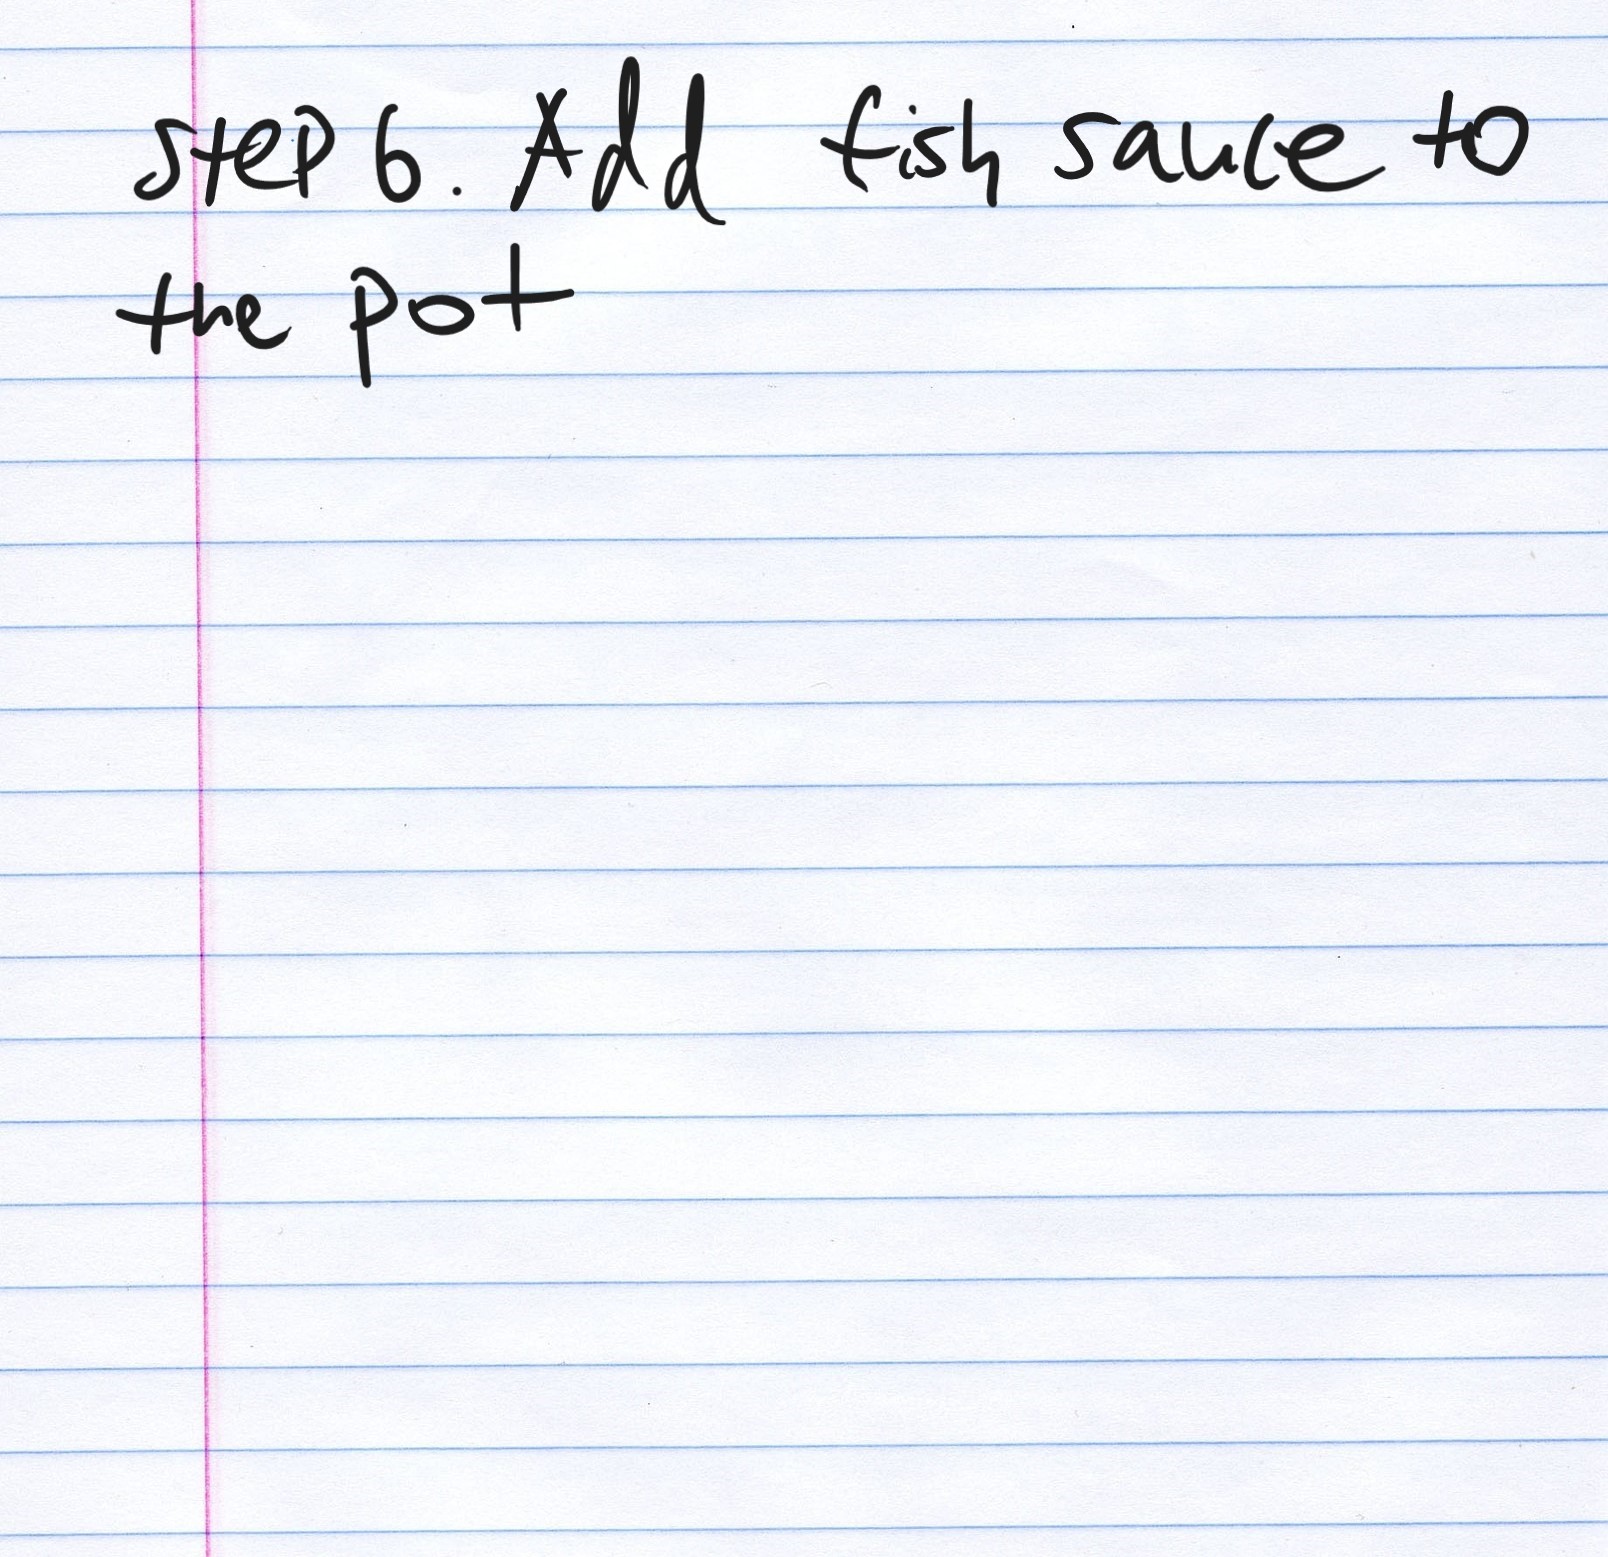 Step 6. Add fish sauce to
the pot